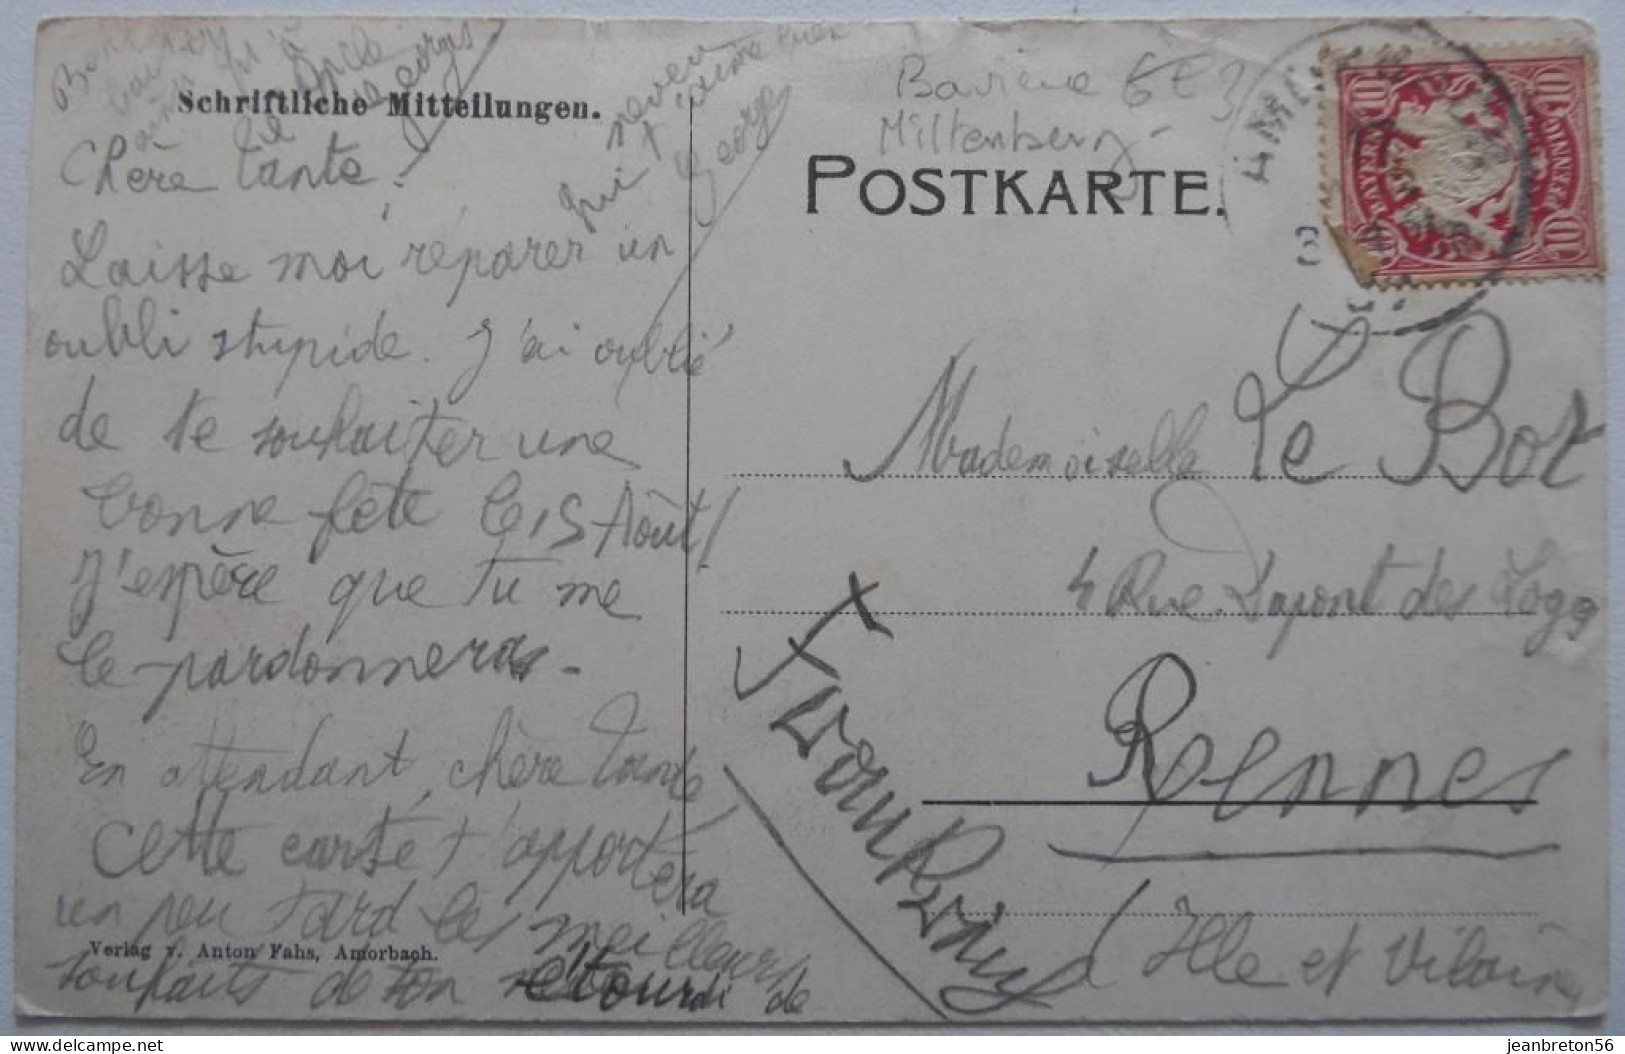 Schriftliche Mitteilungen.
Chère Tante!
Laisse moi réparer un
oubli stupide. J'ai oublié
de te souhaiter une
bonne fête le 15 Août!
J'espère que tu me
le pardonneras -
En attendant, chère Tante,
cette carte t'apportera
un peu tard les meilleurs
souhaits de ton étourdi de
neveu
qui t'aime bien
Georges
Verlag v. Anton Fahs, Amorbach.
oncle
Georges
Bavière
Miltenberg -
POSTKARTE.
10 BAYERN 10 PFENNIG
Mademoiselle Le Bot
4 Rue Dupont des Loges
Rennes
(Ille et Vilaine
Frankreich
jeanbreton56